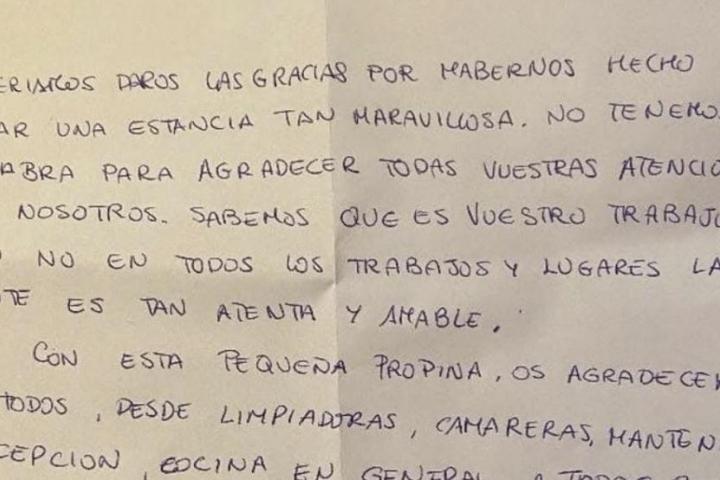 DAROS LAS GRACIAS POR HABERNOS HECHO
AR UNA ESTANCIA TAN MARAVILLOSA. NO TENEMO
ABRA PARA AGRADECER TODAS VUESTRAS ATENCIO
NOSOTROS. SABEMOS QUE ES VUESTRO TRABAJO
NO EN TODOS LOS TRABAJOS Y LUGARES LA
TE ES TAN ATENTA Y AMABLE.
CON ESTA PEQUEÑA PROPINA, OS AGRADECEM
TODOS, DESDE LIMPIADORAS, CAMARERAS, MANTEN
CEPCION, COCINA EN GENERAL